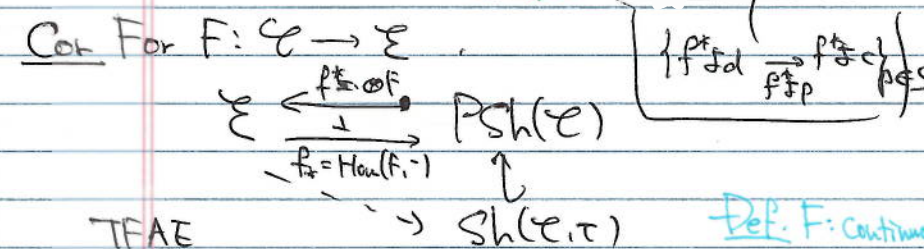 Cor For F: 𝒞 → ℰ .
{f*よd → f*よc}
f*よp
f* = - ⊗F
ℰ ⊥ PSh(𝒞)
f_* = Hom(F, -)
TFAE Sh(𝒞, τ) Def. F: continu